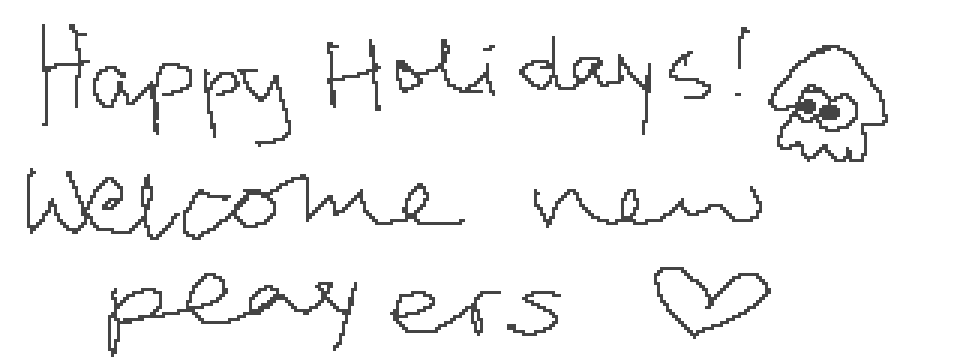 Happy Holidays!
Welcome new
players ♡